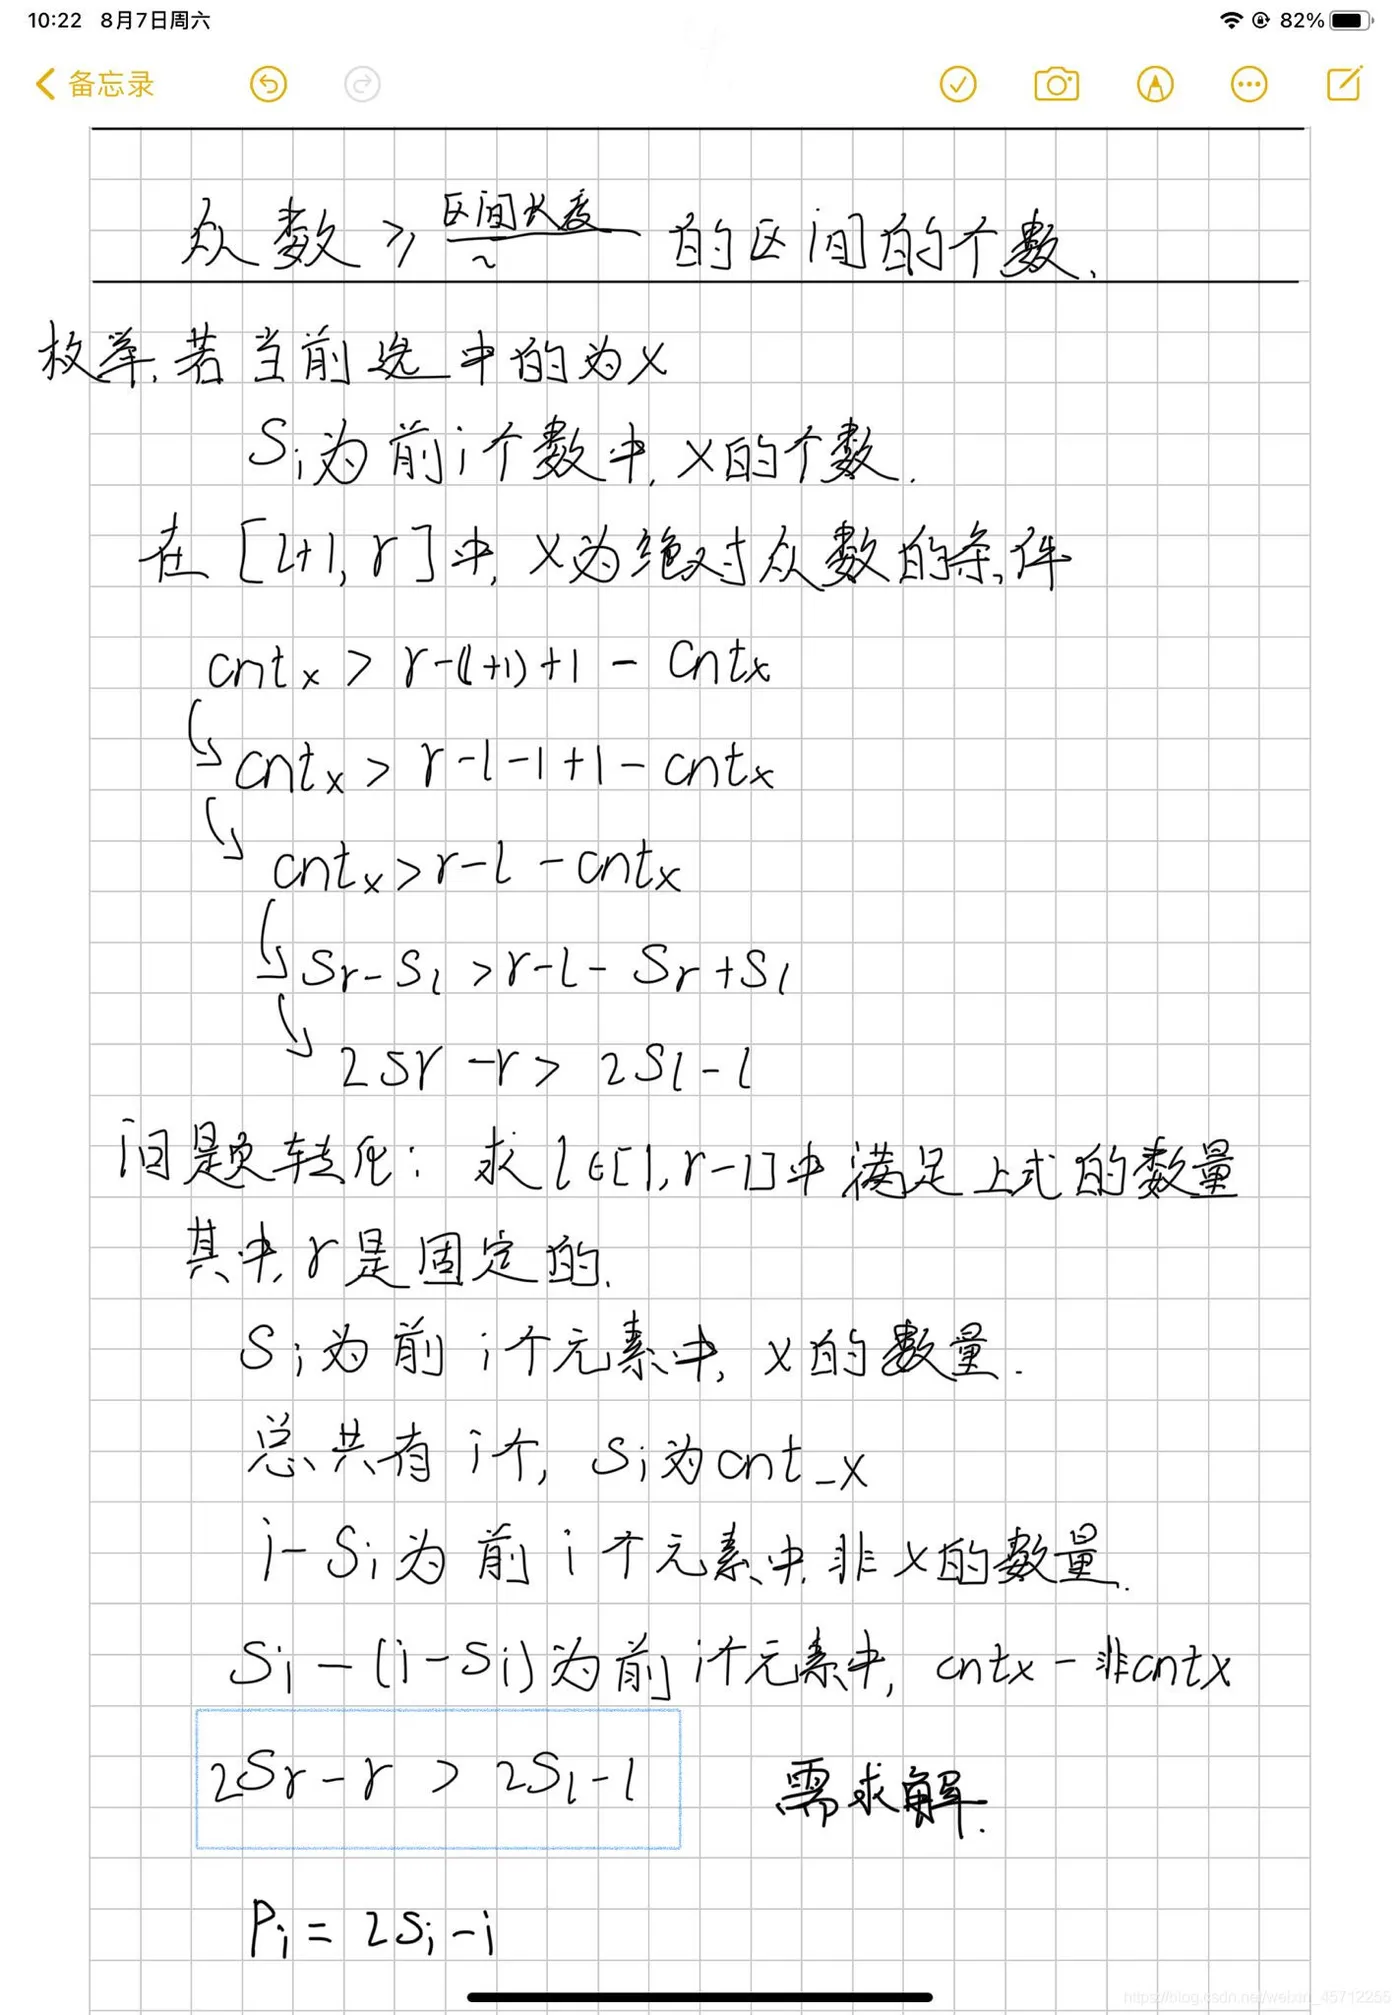 10:22 8月7日周六
82%
备忘录
众数 ≥ 区间长度/2 的区间的个数.
枚举, 若当前选中的为x
Si为前i个数中, x的个数.
在[l+1, r]中, x为绝对众数的条件
cntx > r-(l+1)+1 - cntx
cntx > r-l-1+1-cntx
cntx>r-l-cntx
Sr-Sl >r-l-Sr+Sl
2Sr-r> 2Sl-l
问题转化: 求l∈[1,r-1]中满足上式的数量
其中, r是固定的.
Si为前i个元素中, x的数量.
总共有i个, Si为cnt_x
i-Si为前i个元素中, 非x的数量.
Si-(i-Si)为前i个元素中, cntx-非cntx
2Sr-r > 2Sl-l 需求解.
Pi=2Si-i
https://blog.csdn.net/weixin_45712255